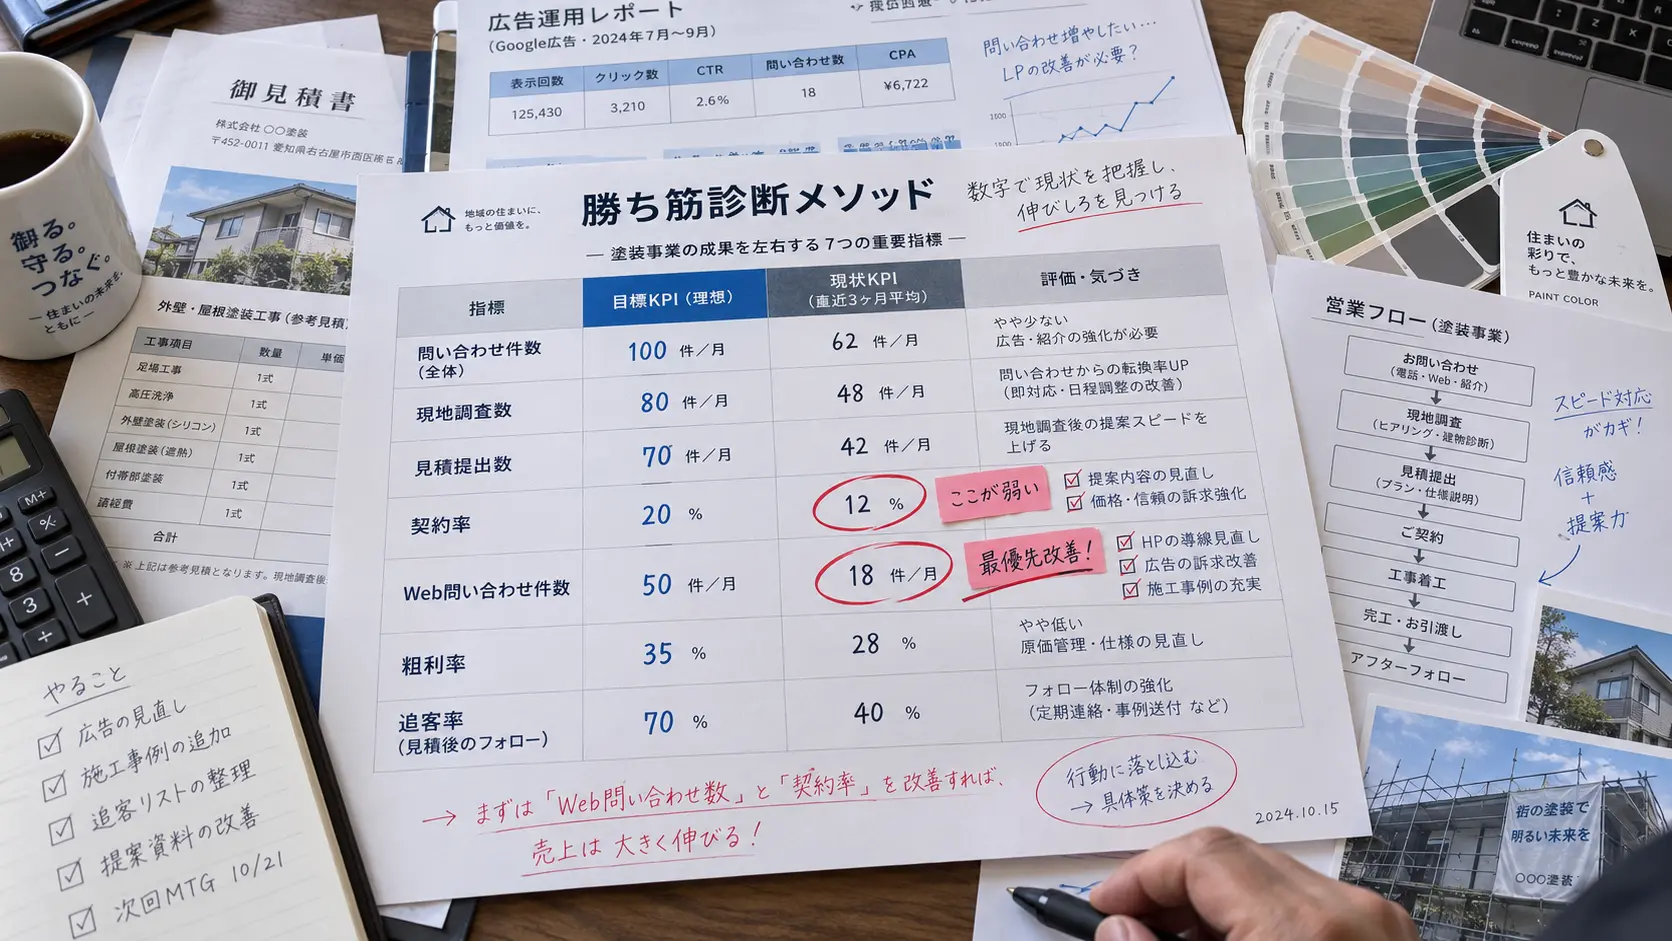 広告運用レポート
(Google広告・2024年7月〜9月)
表示回数 クリック数 CTR 問い合わせ数 CPA
125,430 3,210 2.6% 18 ¥6,722
問い合わせ増やしたい…
LPの改善が必要?
1500
御見積書
株式会社 〇〇塗装
〒452-0011
外壁・屋根塗装工事(参考見積)
工事項目 数量 単価
足場工事 1式
高圧洗浄 1式
外壁塗装(シリコン) 1式
屋根塗装(遮熱) 1式
付帯部塗装 1式
諸経費 1式
合計
※上記は参考見積となります。現地調査後
守る。
つなぐ。
住まいの未来を、
ともに
地域の住まいに、
もっと価値を。
勝ち筋診断メソッド
― 塗装事業の成果を左右する7つの重要指標 ―
数字で現状を把握し、
伸びしろを見つける
指標 目標KPI(理想) 現状KPI
(直近3ヶ月平均) 評価・気づき
問い合わせ件数
(全体) 100 件/月 62 件/月 やや少ない
広告・紹介の強化が必要
現地調査数 80 件/月 48 件/月 問い合わせからの転換率UP
(即対応・日程調整の改善)
見積提出数 70 件/月 42 件/月 現地調査後の提案スピードを
上げる
契約率 20 % 12 % ここが弱い
提案内容の見直し
価格・信頼の訴求強化
Web問い合わせ件数 50 件/月 18 件/月 最優先改善!
HPの導線見直し
広告の訴求改善
施工事例の充実
粗利率 35 % 28 % やや低い
原価管理・仕様の見直し
追客率
(見積後のフォロー) 70 % 40 % フォロー体制の強化
(定期連絡・事例送付 など)
→ まずは「Web問い合わせ数」と「契約率」を改善すれば、
売上は大きく伸びる!
行動に落とし込む
→ 具体策を決める
2024.10.15
住まいの
彩りで、
もっと豊かな未来を。
PAINT COLOR
営業フロー(塗装事業)
お問い合わせ
(電話・Web・紹介)
現地調査
(ヒアリング・建物診断)
見積提出
(プラン・仕様説明)
ご契約
工事着工
完工・お引渡し
アフターフォロー
スピード対応
がカギ!
信頼感
+
提案力
街の塗装で
明るい未来を
〇〇〇塗装
M+
%
8
3
+
やること
広告の見直し
施工事例の追加
追客リストの整理
提案資料の改善
次回MTG 10/21